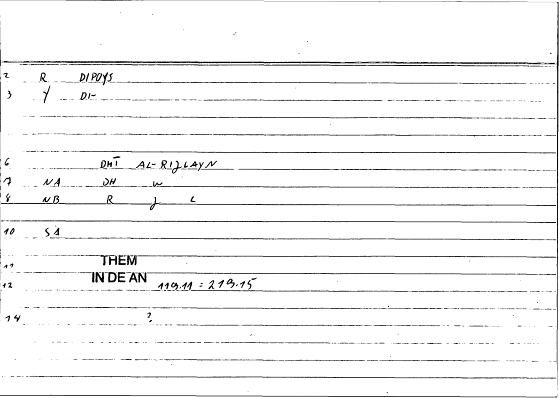 2 R DIPOYS
3 Y DI-
6 DHĪ AL-RIJLAYN
7 NA DH W
8 NB R J L
10 SA
11 THEM
12 IN DE AN 119.11 = 219.15
14 ?